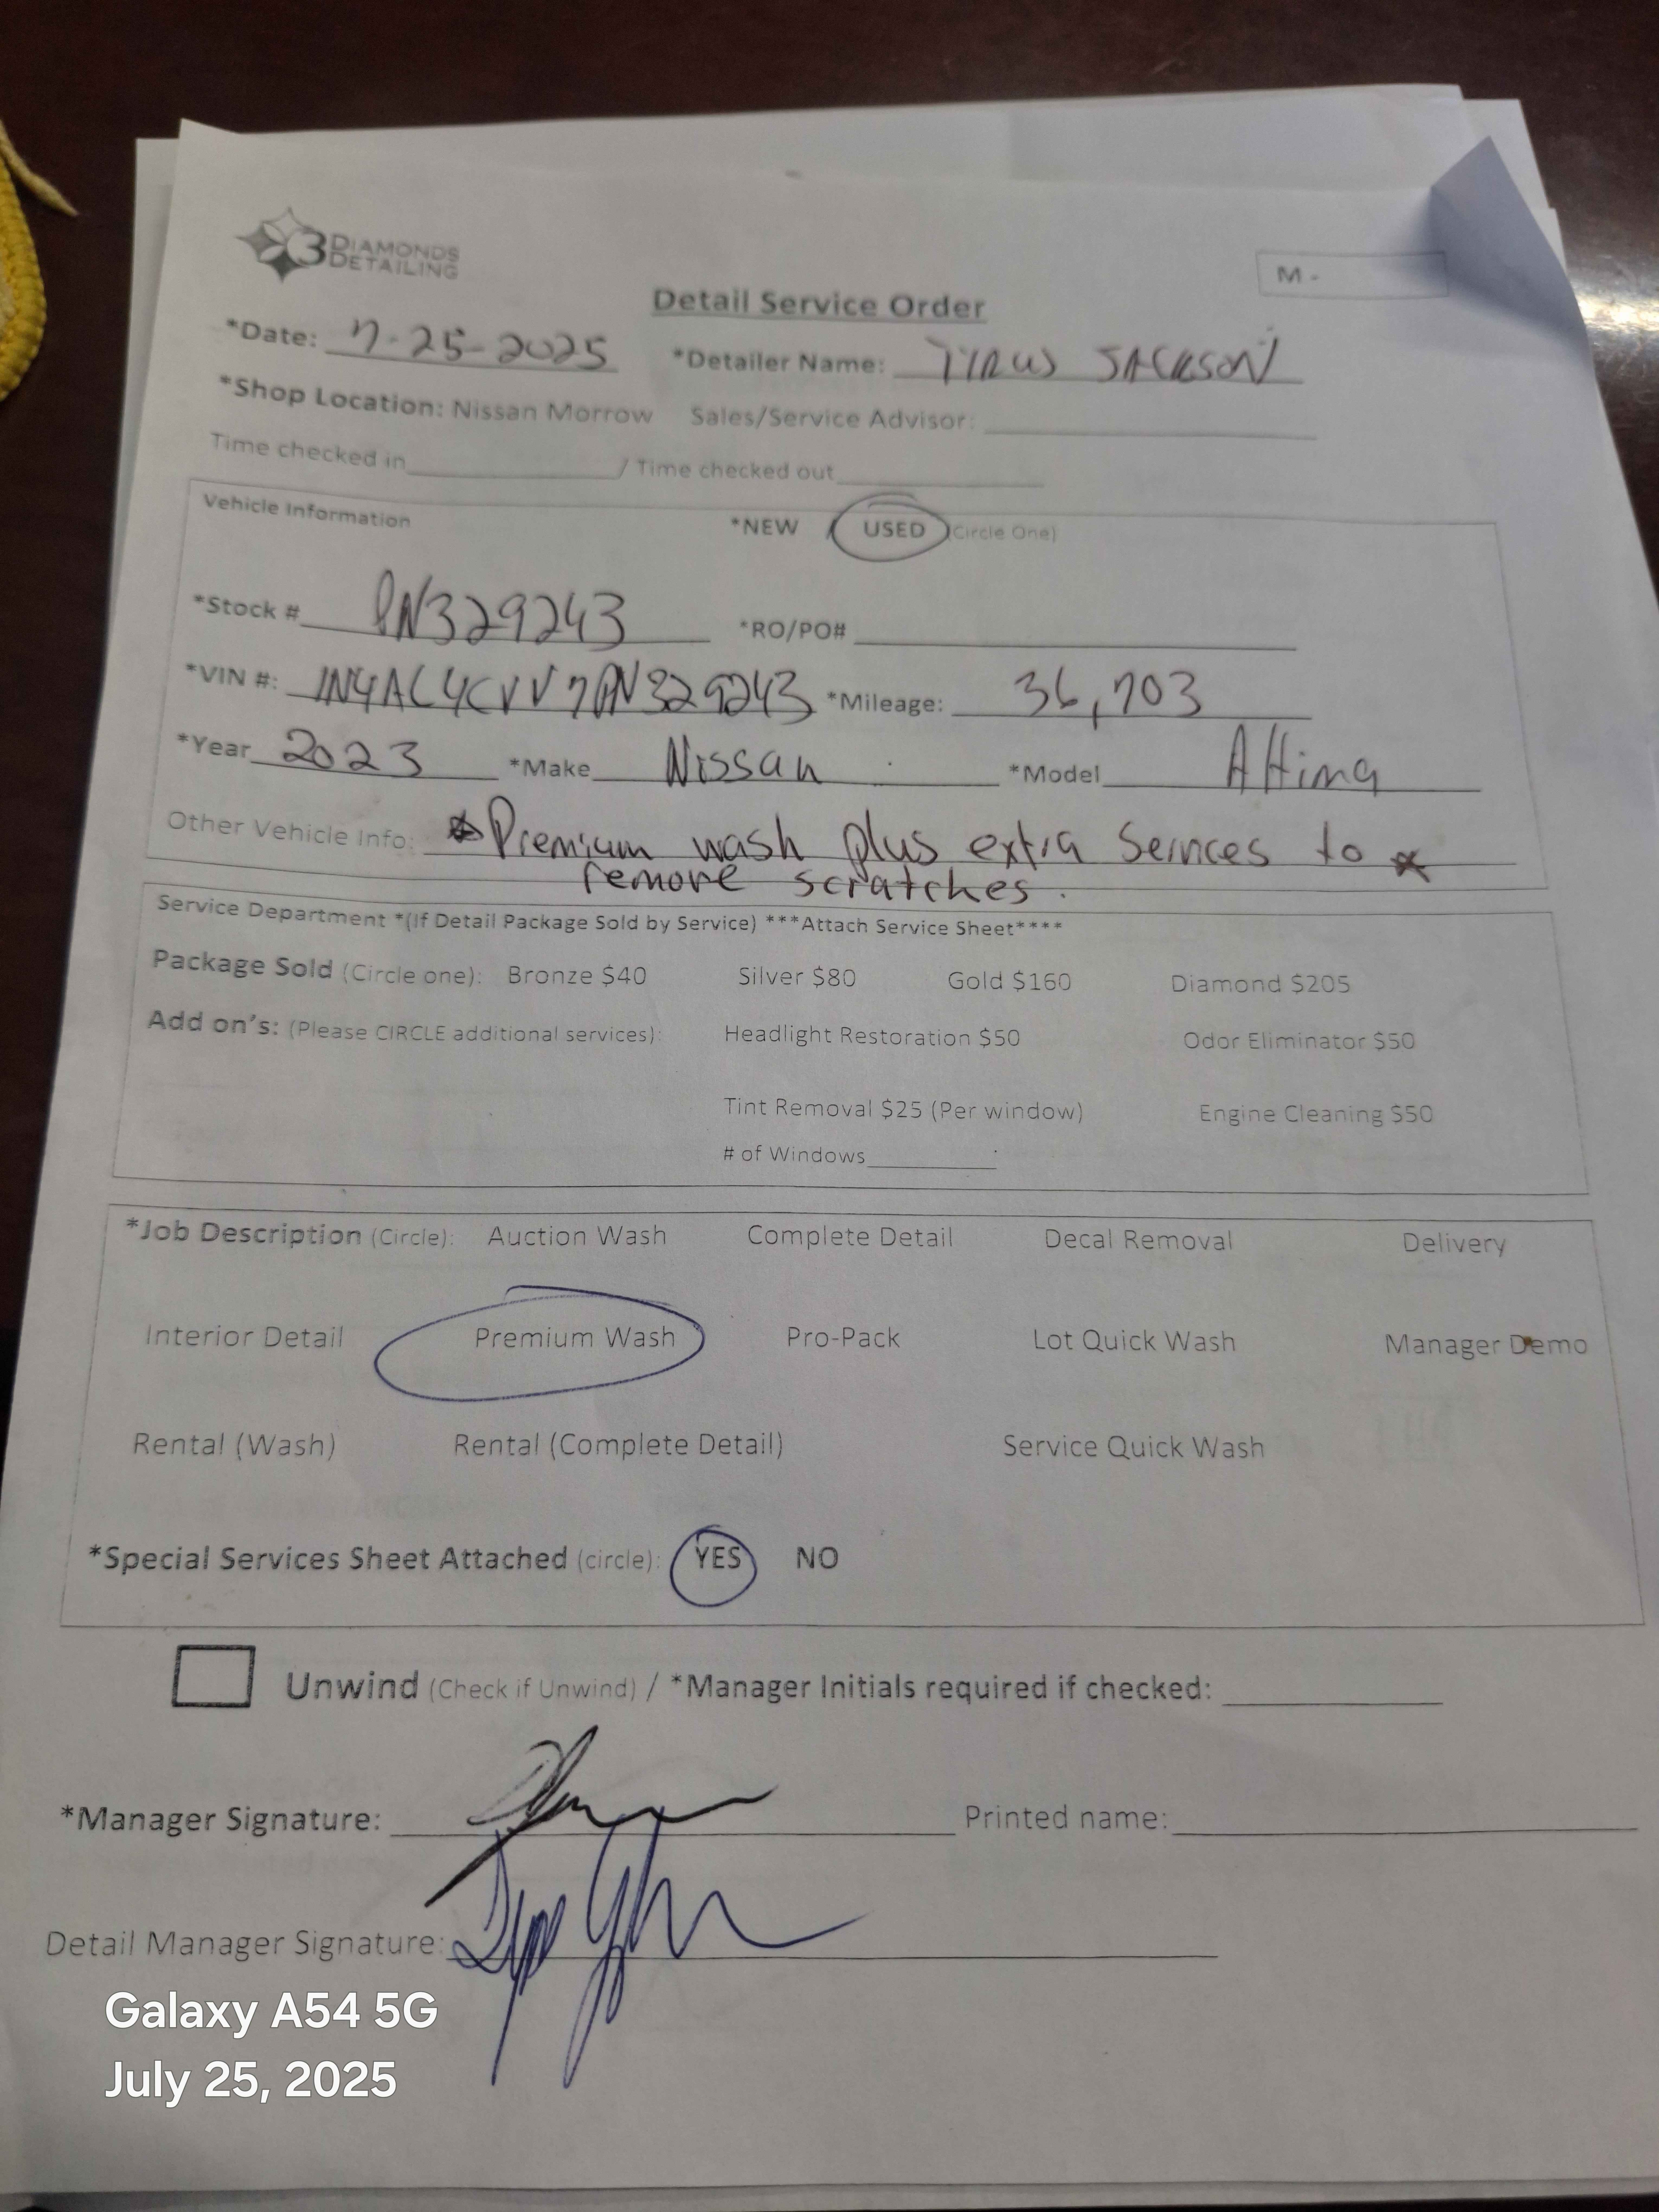 3 DIAMONDS
DETAILING
M -
Detail Service Order
*Date: 7-25-2025 *Detailer Name: TYRUS JACKSON
*Shop Location: Nissan Morrow Sales/Service Advisor:
Time checked in / Time checked out
Vehicle Information *NEW / USED (Circle One)
*Stock # PN329243 *RO/PO#
*VIN #: 1N4AL4CVV7PN329243 *Mileage: 36,703
*Year 2023 *Make Nissan *Model Altima
Other Vehicle Info: *Premium wash plus extra Services to *
remove scratches.
Service Department *(If Detail Package Sold by Service) ***Attach Service Sheet****
Package Sold (Circle one): Bronze $40 Silver $80 Gold $160 Diamond $205
Add on's: (Please CIRCLE additional services): Headlight Restoration $50 Odor Eliminator $50
Tint Removal $25 (Per window) Engine Cleaning $50
# of Windows
*Job Description (Circle): Auction Wash Complete Detail Decal Removal Delivery
Interior Detail Premium Wash Pro-Pack Lot Quick Wash Manager Demo
Rental (Wash) Rental (Complete Detail) Service Quick Wash
*Special Services Sheet Attached (circle): YES NO
Unwind (Check if Unwind) / *Manager Initials required if checked:
*Manager Signature: Printed name:
Detail Manager Signature:
Galaxy A54 5G
July 25, 2025